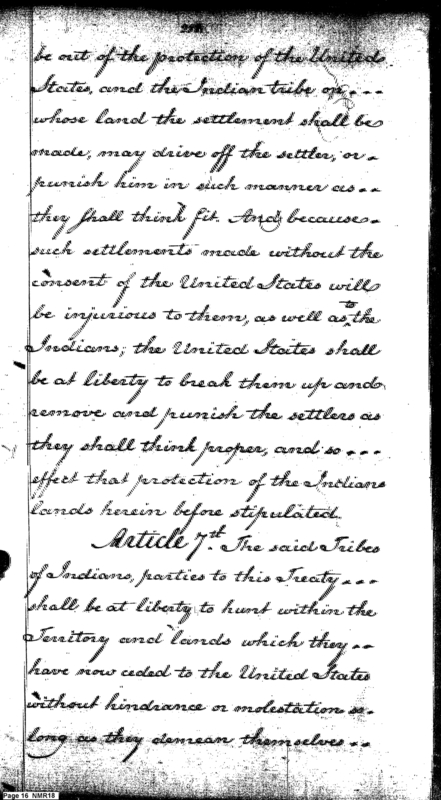 be out of the protection of the United
States, and the Indian tribe on
whose land the settlement shall be
made, may drive off the settler, or
punish him in such manner as
they shall think fit. And because
such settlements made without the
consent of the United States will
be injurious to them, as well as to the
Indians; the United States shall
be at liberty to break them up and
remove and punish the settlers as
they shall think proper, and so
effect that protection of the Indians
lands herein before stipulated.
Article 7th. The said Tribes
of Indians, parties to this Treaty
shall be at liberty to hunt within the
Territory and lands which they
have now ceded to the United States
without hindrance or molestation so
long as they demean themselves
Page 16 NMR18